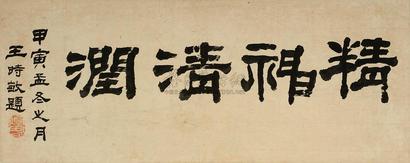 精神清潤
甲寅孟冬之月
王時敏題